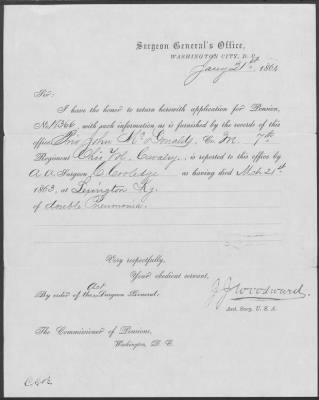 Surgeon General's Office,
WASHINGTON CITY, D. C.
Jany 21st, 1864
Sir:
I have the honor to return herewith application for Pension,
No. with such information as is furnished by the records of this
office. John McDonald, Co. M. 7th
Regiment Ohio Vol. Cavalry, is reported to this office by
A A Surgeon C. Cooledge as having died Mch 21st
1863, at Lexington Ky.
of double Pneumonia.
Very respectfully,
Your obedient servant,
Act
By order of the Surgeon General:
J J Woodward.
Asst. Surg. U. S. A.
The Commissioner of Pensions,
Washington, D. C.